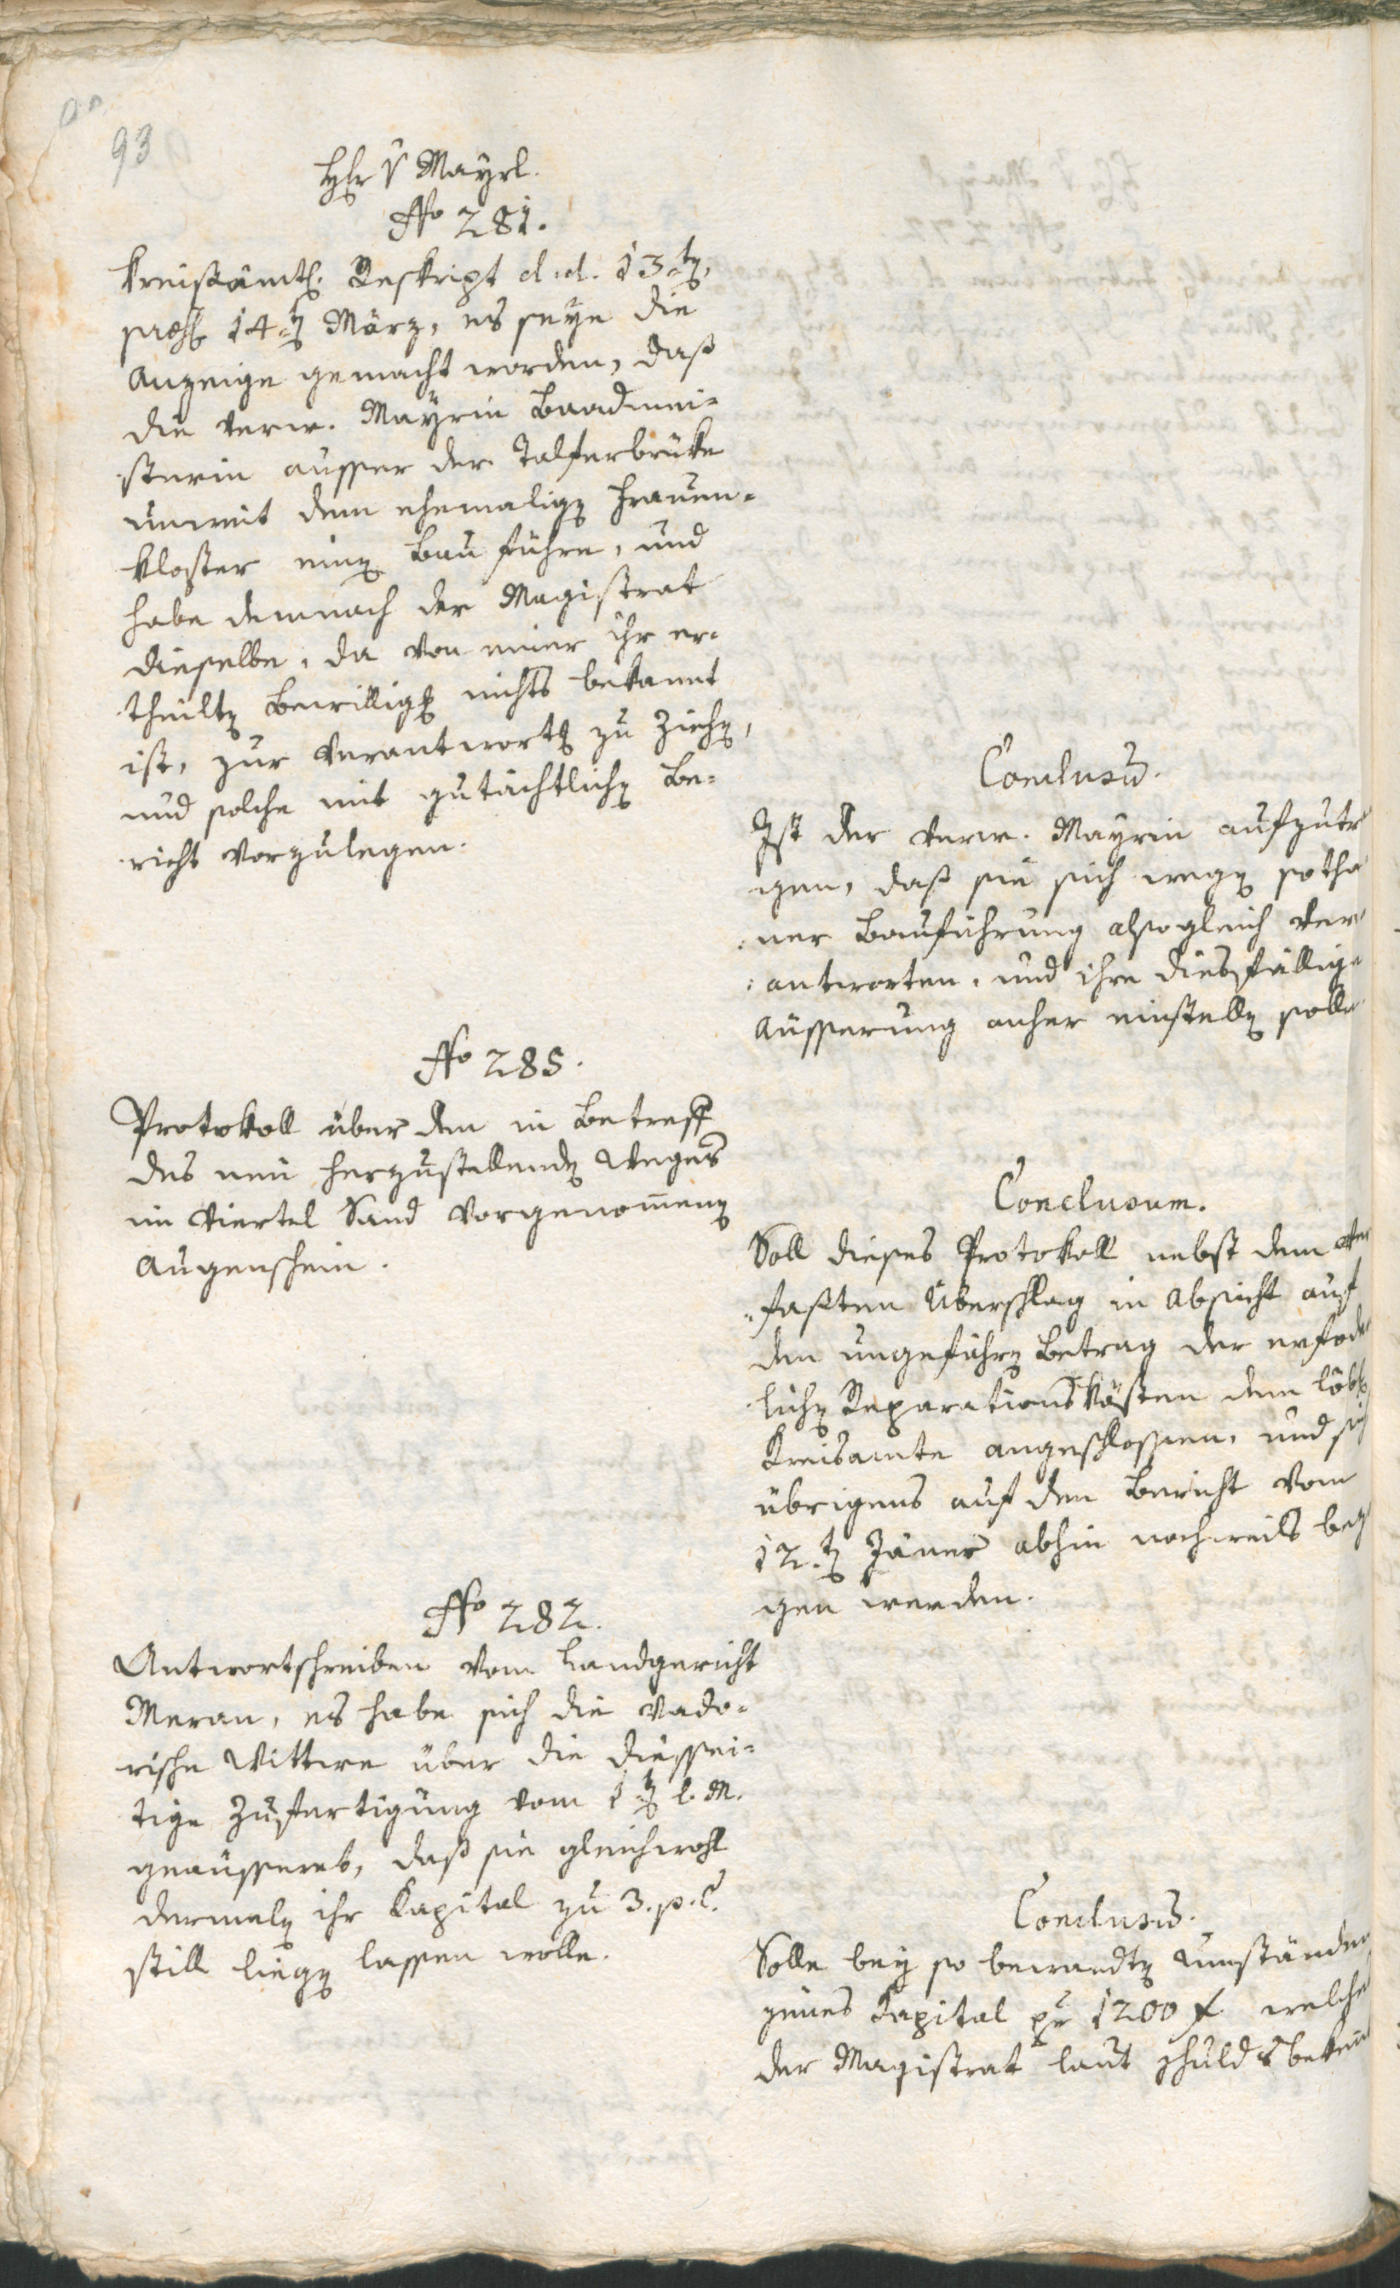 93
Hr v Mayrl.
No 281.
Kreißämtl. Reskript d. d. 13.t,
praes. 14.t März, es seye die
Anzeige gemacht worden, daß
die verw. Mayrin Baadmei-
sterin ausser der Talferbrüke
unweit dem ehemalig Frauen-
kloster ein Bau führe, und
habe demnach der Magistrat
dieselbe, da von einer ihr er-
theilt Bewillig nichts bekannt
ist, zur Verantwort zu Zieh,
und solche mit gutächtlich Be-
richt vorzulegen.
Conclusū.
Ist der verw. Mayrin aufzutr
gen, daß sie sich weg sotha
ner Bauführung alsogleich ver
antworten, und ihre diesfällige
Äusserung anher einstell solle
No 285.
Protokoll über den in Betreff
des neu herzustellend Weges
im Viertel Sand vorgenom̄en
Augenschein.
Conclusum.
Soll dieses Protokoll nebst dem ver
faßten Überschlag in Absicht auf
den ungefähr Betrag der erfode
lich Reparationskösten dem löbl
Kreisamte angeschlossen, und sich
übrigens auf den Bericht vom
12.t Jäner abhin nochweils bez
gen werden.
No 282.
Antwortschreiben vom Landgericht
Meran, es habe sich die Vado-
rische Wittwe über die diessei-
tige Zufertigung vom 1.t l. M.
geäussert, daß sie gleichwohl
dermal ihr Kapital zu 3. p. C.
still lieg lassen wolle.
Conclusū.
Solle bey so bewandt Umständen
jenes Kapital pr 1200 f welche
der Magistrat laut Schuldsbeken̄